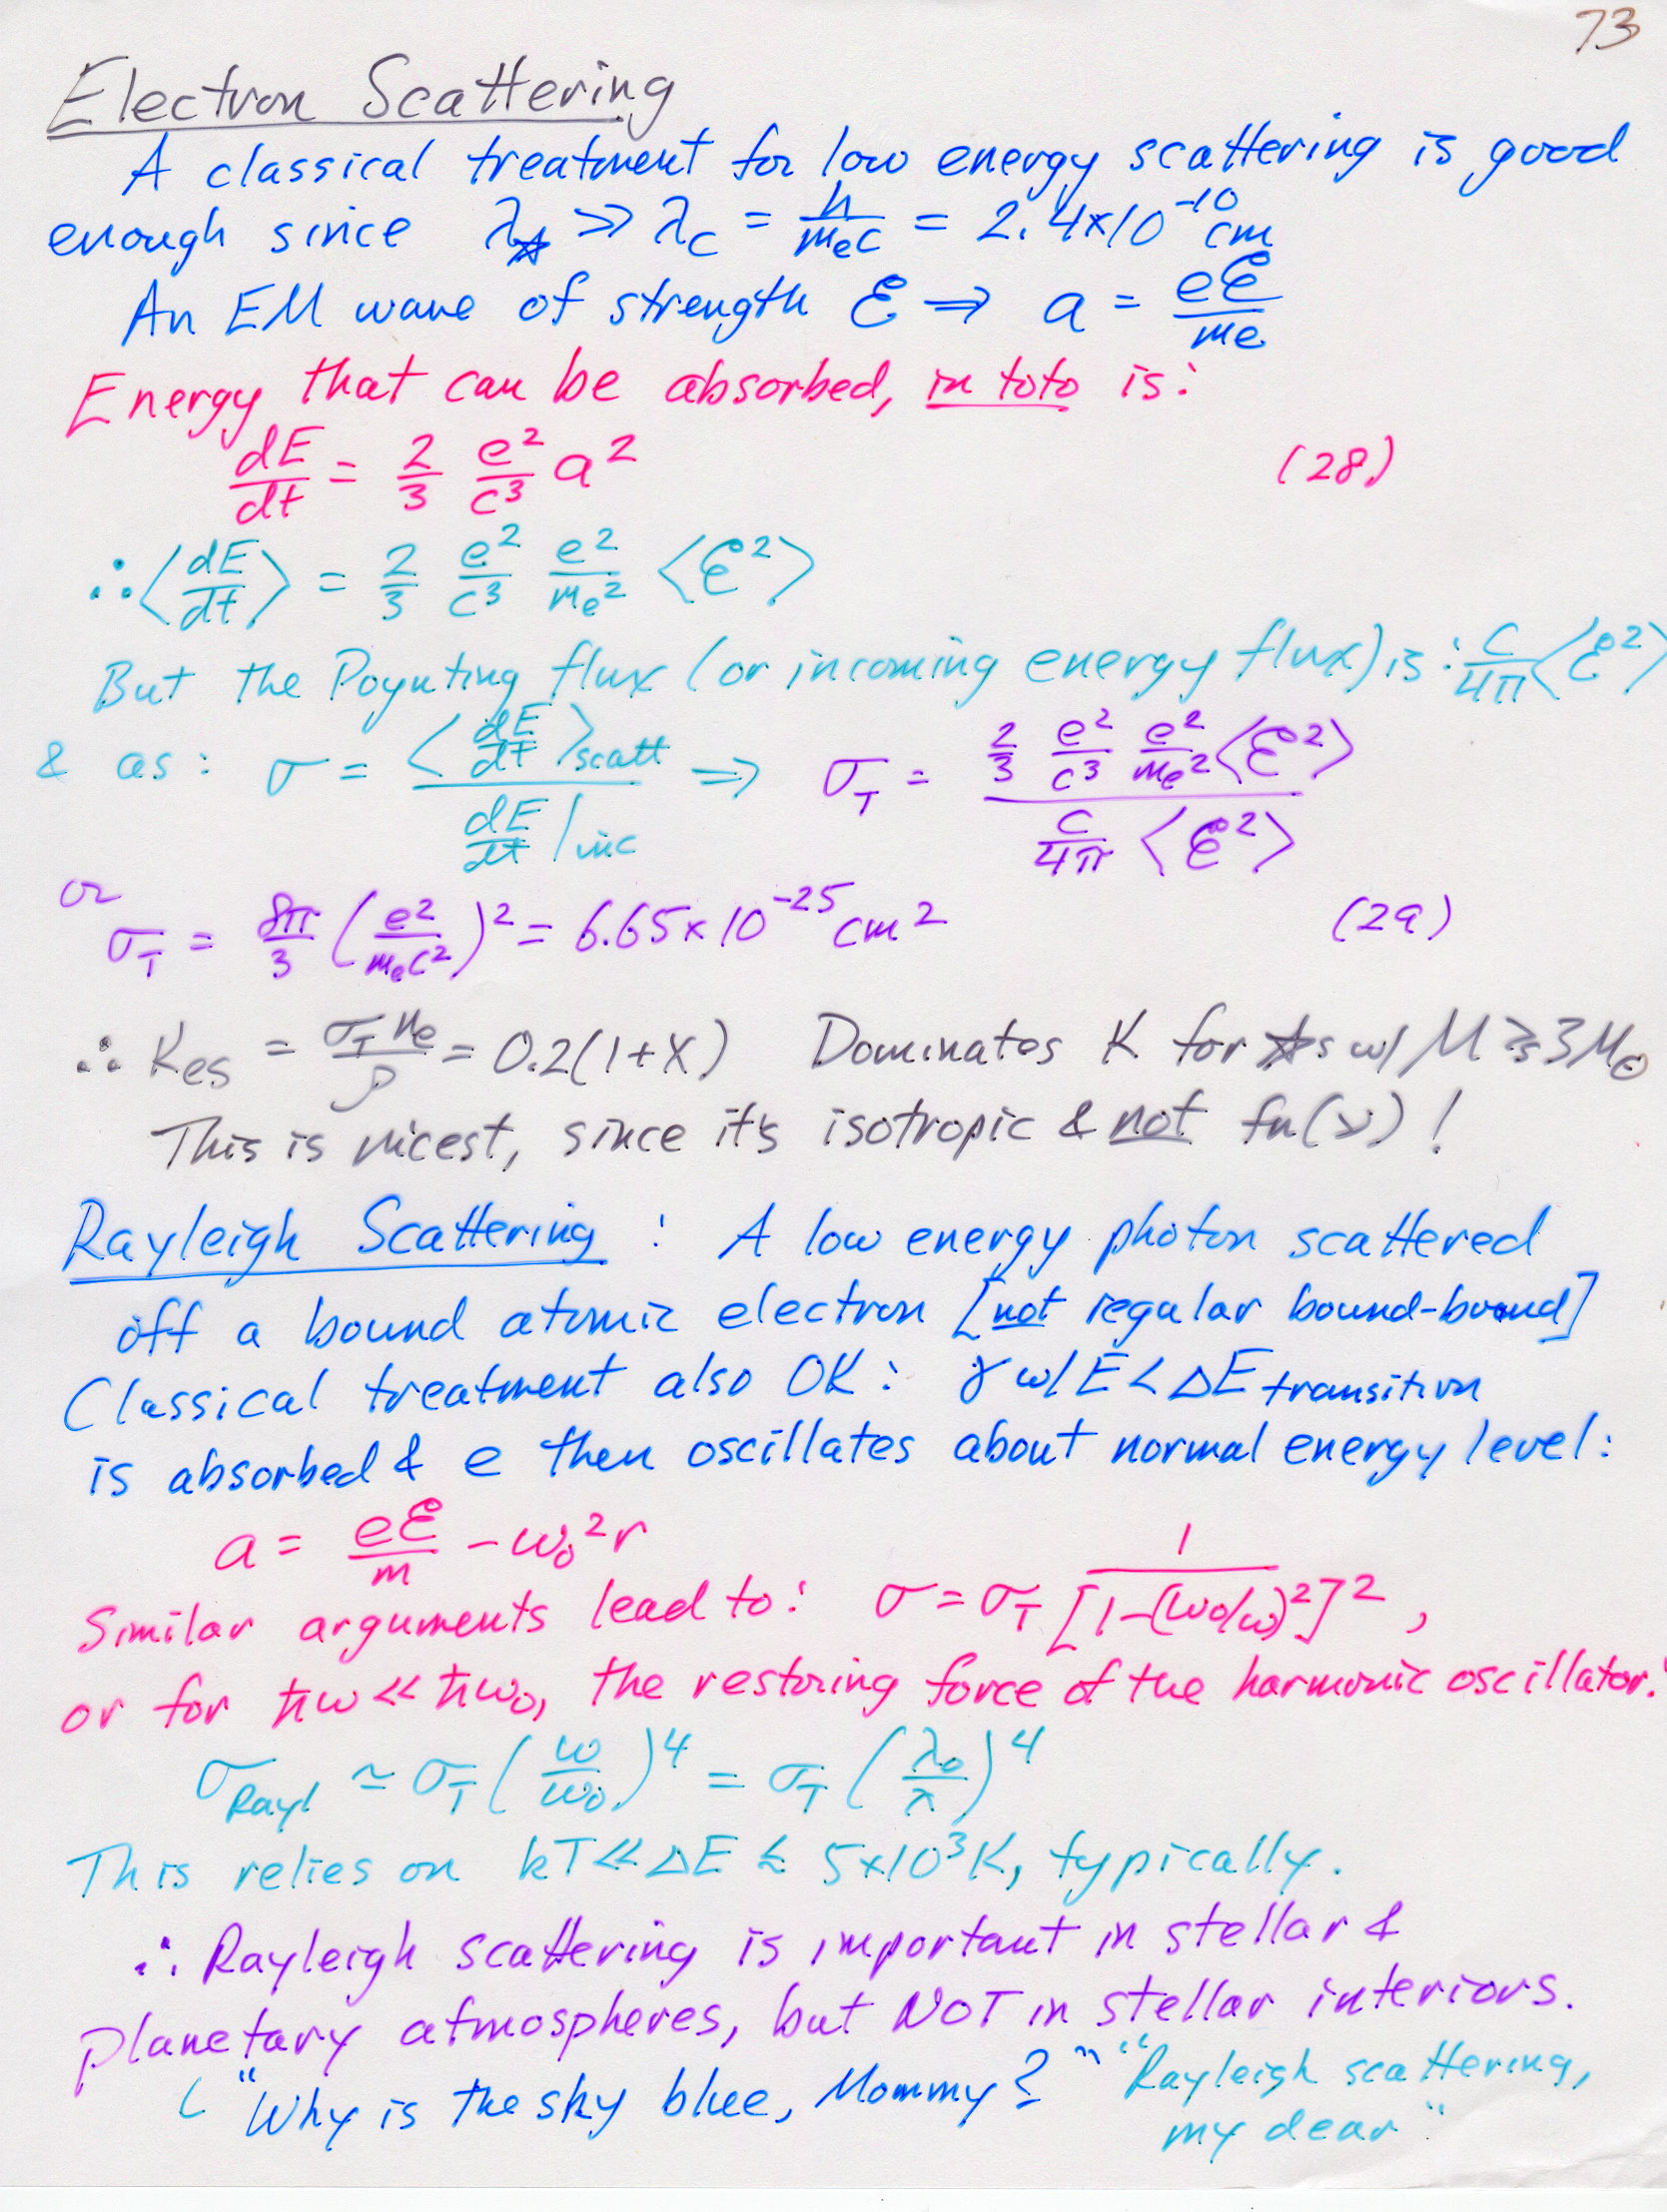 73
Electron Scattering
A classical treatment for low energy scattering is good
enough since λ☆ >> λc = h/mec = 2.4×10^-10 cm
An EM wave of strength ℰ ⇒ a = eℰ/me
Energy that can be absorbed, in toto is:
dE/dt = 2/3 e²/c³ a² (28)
∴ ⟨dE/dt⟩ = 2/3 e²/c³ e²/me² ⟨ℰ²⟩
But the Poynting flux (or incoming energy flux) is: c/4π ⟨ℰ²⟩
& as: σ = ⟨dE/dt⟩scatt / dE/dt|inc ⇒ σT = 2/3 e²/c³ e²/me² ⟨ℰ²⟩ / c/4π ⟨ℰ²⟩
or
σT = 8π/3 (e²/mec²)² = 6.65×10^-25 cm² (29)
∴ Kes = σT ne/ρ = 0.2(1+X) Dominates K for ☆s w/ M ≳ 3M⊙
This is nicest, since it's isotropic & not fn(ν)!
Rayleigh Scattering: A low energy photon scattered
off a bound atomic electron [not regular bound-bound]
Classical treatment also OK: γ w/ E < ΔE transition
is absorbed & e then oscillates about normal energy level:
a = eℰ/m - ω₀²r
Similar arguments lead to: σ = σT 1/[1-(ω₀/ω)²]²,
or for ħω << ħω₀, the restoring force of the harmonic oscillator:
σRayl ≃ σT (ω/ω₀)⁴ = σT (λ₀/λ)⁴
This relies on kT << ΔE ≲ 5×10³K, typically.
∴ Rayleigh scattering is important in stellar &
planetary atmospheres, but NOT in stellar interiors.
( "Why is the sky blue, Mommy?" "Rayleigh scattering,
my dear"